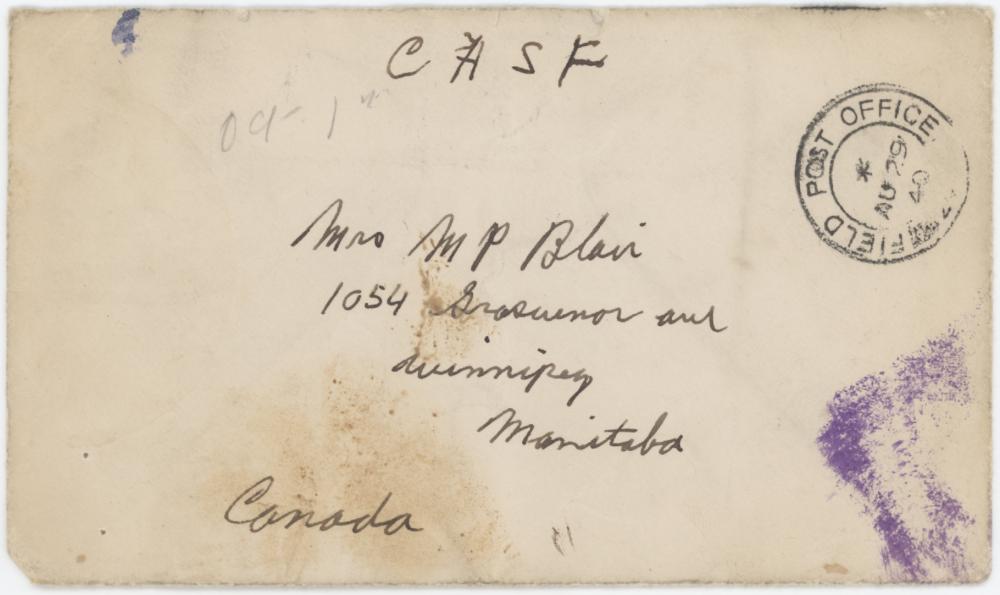 C A S F
Oct 1st
FIELD POST OFFICE
* AU 29 40
Mrs M P Blair
1054 Grosvenor ave
Winnipeg
Manitoba
Canada